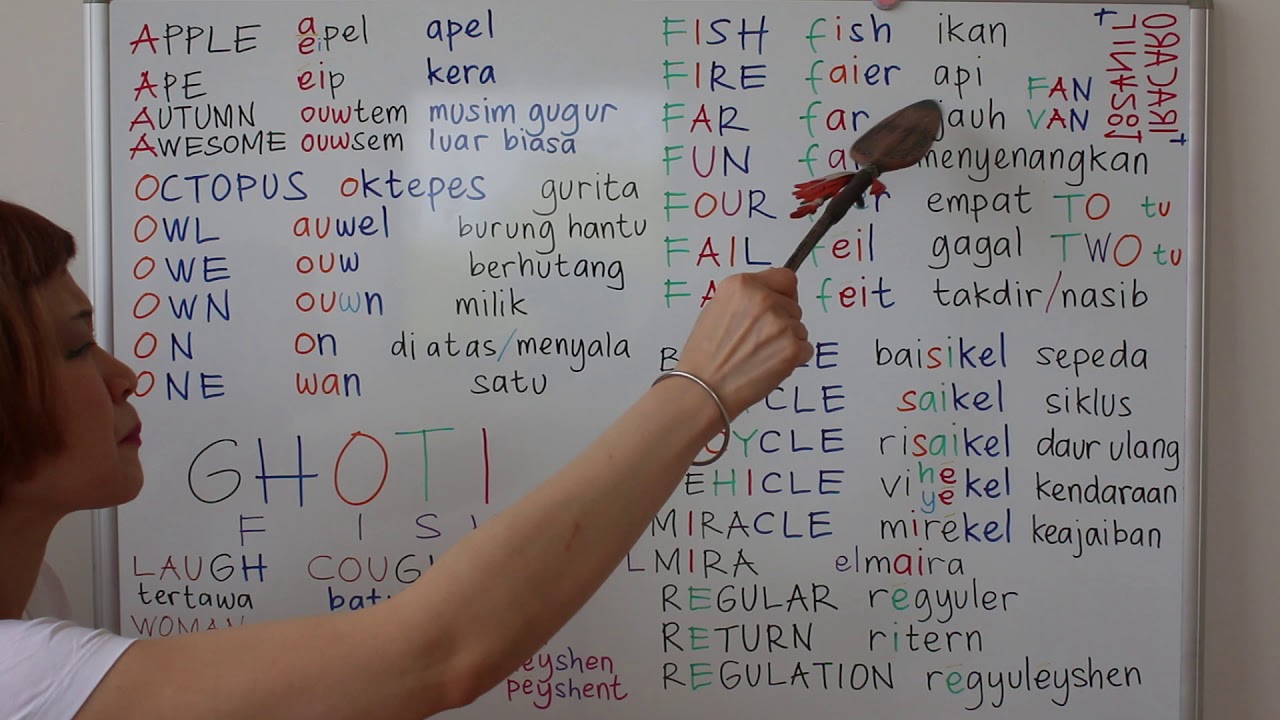 APPLE a eipel apel
APE eip kera
AUTUMN ouwtem musim gugur
AWESOME ouwsem luar biasa
OCTOPUS oktepes gurita
OWL auwel burung hantu
OWE ouw berhutang
OWN ouwn milik
ON on di atas/menyala
ONE wan satu
GHOTI
F I S
LAUGH
tertawa
WOMAN
peyshent
FISH fish ikan
FIRE faier api
FAR far jauh
FUN menyenangkan
FOUR empat
FAIL feil gagal
feit takdir/nasib
FAN
VAN
TO tu
TWO tu
baisikel sepeda
saikel siklus
risaikel daur ulang
vi he ye kel kendaraan
MIRACLE mirekel keajaiban
elmaira
REGULAR regyuler
RETURN ritern
REGULATION regyuleyshen